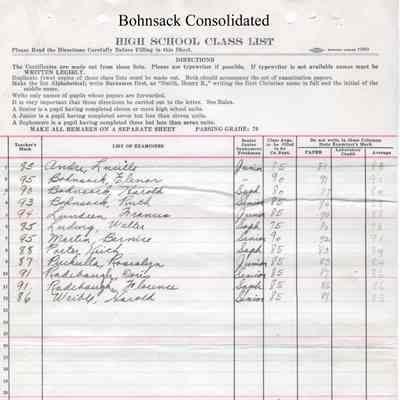 Bohnsack Consolidated
HIGH SCHOOL CLASS LIST
Please Read the Directions Carefully Before Filling in this Sheet.
DIRECTIONS
The Certificates are made out from these lists. Please use typewriter if possible. If typewriter is not available names must be
WRITTEN LEGIBLY.
Duplicate (two) copies of these class lists must be made out. Both should accompany the set of examination papers.
Make the list Alphabetical; write Surnames first, as "Smith, Henry R.," writing the first Christian name in full and the initial of the
middle name.
Write only names of pupils whose papers are forwarded.
It is very important that these directions be carried out to the letter. See Rules.
A Senior is a pupil having completed eleven or more high school units.
A Junior is a pupil having completed seven but less than eleven units.
A Sophomore is a pupil having completed three but less than seven units.
MAKE ALL REMARKS ON A SEPARATE SHEET PASSING GRADE: 75
Teacher's Mark LIST OF EXAMINEES Senior Junior Sophomore Freshman Class Avge. to be filled in by Co. Supt. Do not write in these Columns
State Examiner's Mark
PAPER Laboratory Credit Average
Andre, Lucille Junior 85
95 Bohnsack, Elenor 90
90 Bohnsack, Harold Soph 80
93 Bohnsack, Ruth Senior 85
94 Lundeen, Frances Junior 90
85 Ludwig, Walter Soph 75
95 Martin, Bernice Senior 90
88 Peter, Ruth Soph 85
87 Rosalyn Junior 85
91 Radebaugh, Doris Senior 85
91 Radebaugh, Florence Soph 85
86 Harold Senior 85